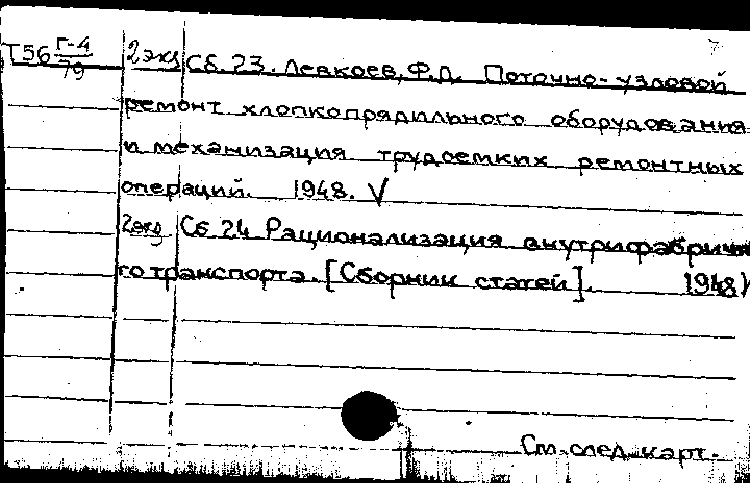 Т56 Г-4/79 2 экз Сб. 23. Левкоев, Ф.Д. Поточно-узловой
ремонт хлопкопрядильного оборудования
и механизация трудоемких ремонтных
операций. 1948. V
2 экз Сб. 24 Рационализация внутрифабрично
го транспорта. [Сборник статей]. 1948 V
См. след. карт.